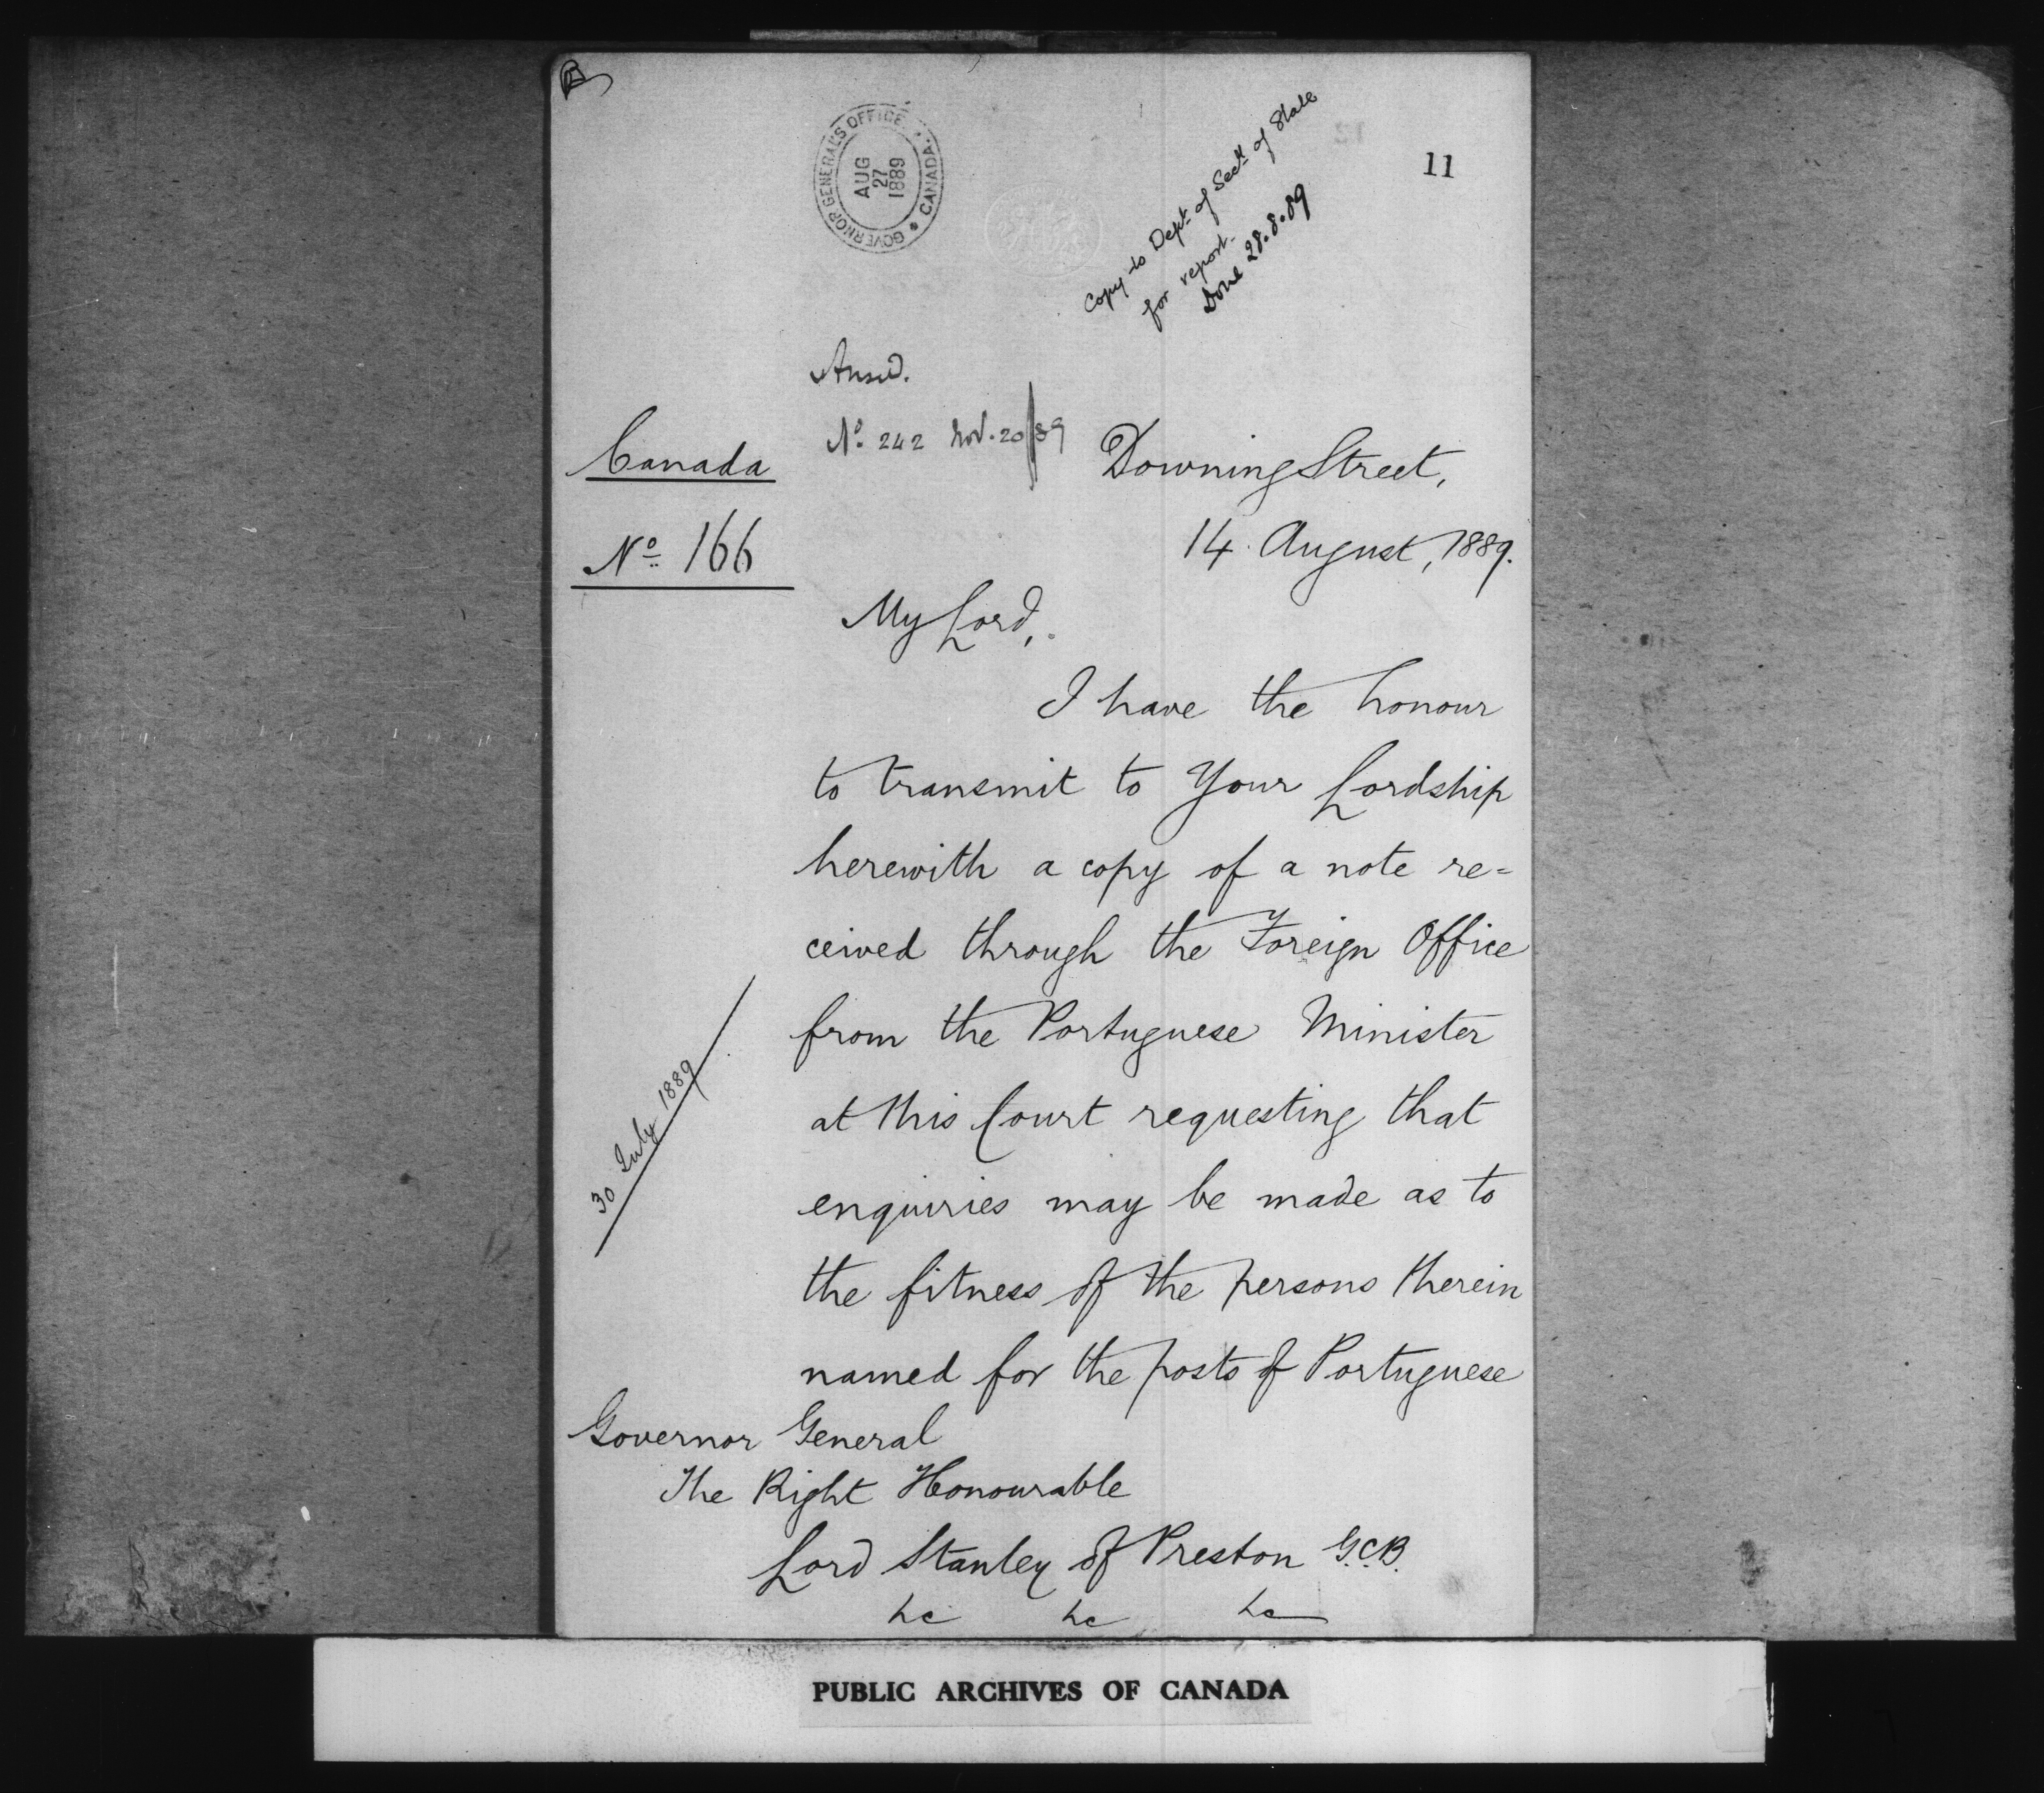 B
GOVERNOR GENERAL'S OFFICE
CANADA
AUG
27
1889
Copy to Dept. of Secy. of State
for report.
Done 28.8.89
11
Answd.
No. 242 Nov. 20/89
Canada
No. 166
Downing Street,
14 August, 1889.
My Lord,
I have the honour
to transmit to Your Lordship
herewith a copy of a note re=
ceived through the Foreign Office
from the Portuguese Minister
at this Court requesting that
enquiries may be made as to
the fitness of the persons therein
named for the posts of Portuguese
30 July 1889
Governor General
The Right Honourable
Lord Stanley of Preston G.C.B.
&c &c &c
PUBLIC ARCHIVES OF CANADA